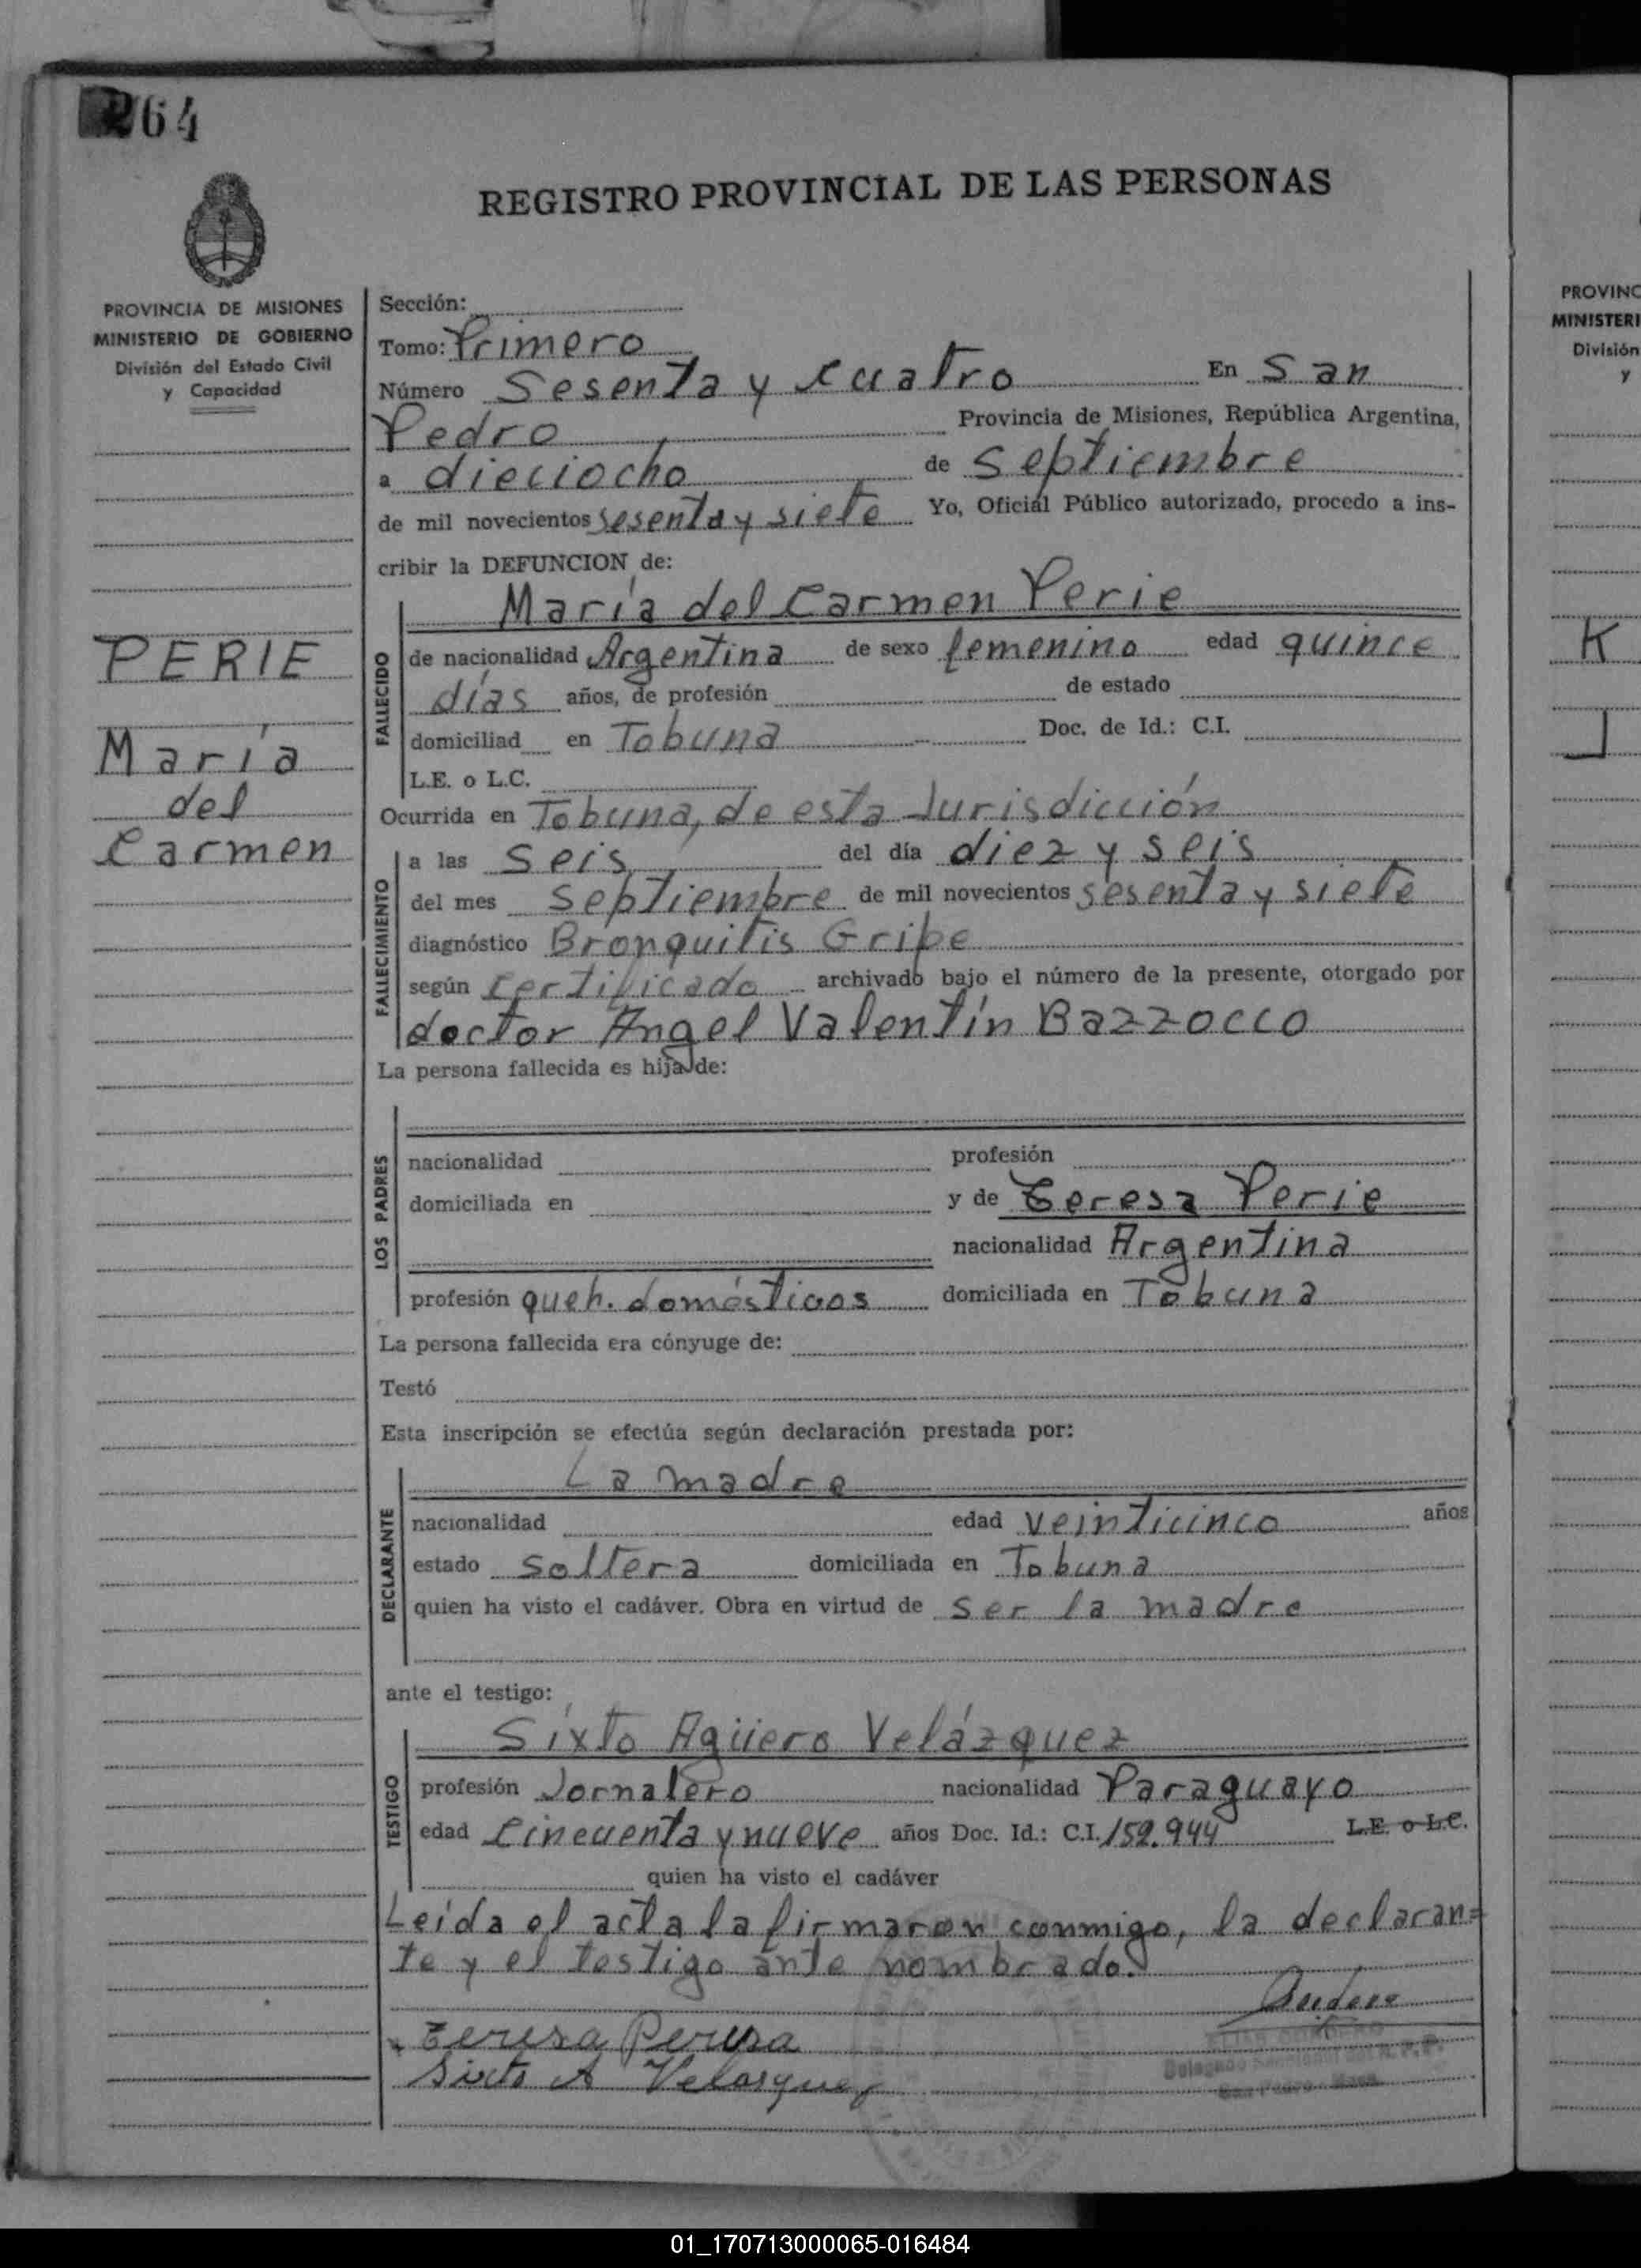 264
REGISTRO PROVINCIAL DE LAS PERSONAS
PROVINCIA DE MISIONES
MINISTERIO DE GOBIERNO
División del Estado Civil
y Capacidad
PERIE
María
del
Carmen
Sección:
Tomo: Primero
Número Sesenta y Cuatro En San
Pedro Provincia de Misiones, República Argentina,
a dieciocho de Septiembre
de mil novecientos sesenta y siete Yo, Oficial Público autorizado, procedo a ins-
cribir la DEFUNCION de:
María del Carmen Perie
FALLECIDO
de nacionalidad Argentina de sexo femenino edad quince
días años, de profesión de estado
domiciliad en Tobuna Doc. de Id.: C.I.
L.E. o L.C.
Ocurrida en Tobuna, de esta Jurisdicción
FALLECIMIENTO
a las Seis, del día diez y seis
del mes Septiembre de mil novecientos sesenta y siete
diagnóstico Bronquitis Gripe
según Certificado archivado bajo el número de la presente, otorgado por
doctor Angel Valentín Bazzocco
La persona fallecida es hija de:
LOS PADRES
nacionalidad profesión
domiciliada en y de Teresa Perie
nacionalidad Argentina
profesión queh. domésticos domiciliada en Tobuna
La persona fallecida era cónyuge de:
Testó
Esta inscripción se efectúa según declaración prestada por:
La madre
DECLARANTE
nacionalidad edad veinticinco años
estado soltera domiciliada en Tobuna
quien ha visto el cadáver. Obra en virtud de ser la madre
ante el testigo:
Sixto Agüero Velázquez
TESTIGO
profesión Jornalero nacionalidad Paraguayo
edad Cincuenta y nueve años Doc. Id.: C.I. 152.944 L.E. o L.C.
quien ha visto el cadáver
Leída el acta la firmaron conmigo, la declaran=
te y el testigo ante nombrado.
Teresa Peresa
Sixto A Velasquez
Delegado
San Pedro
PROVINC
MINISTERI
División
y
K
J
01_170713000065-016484